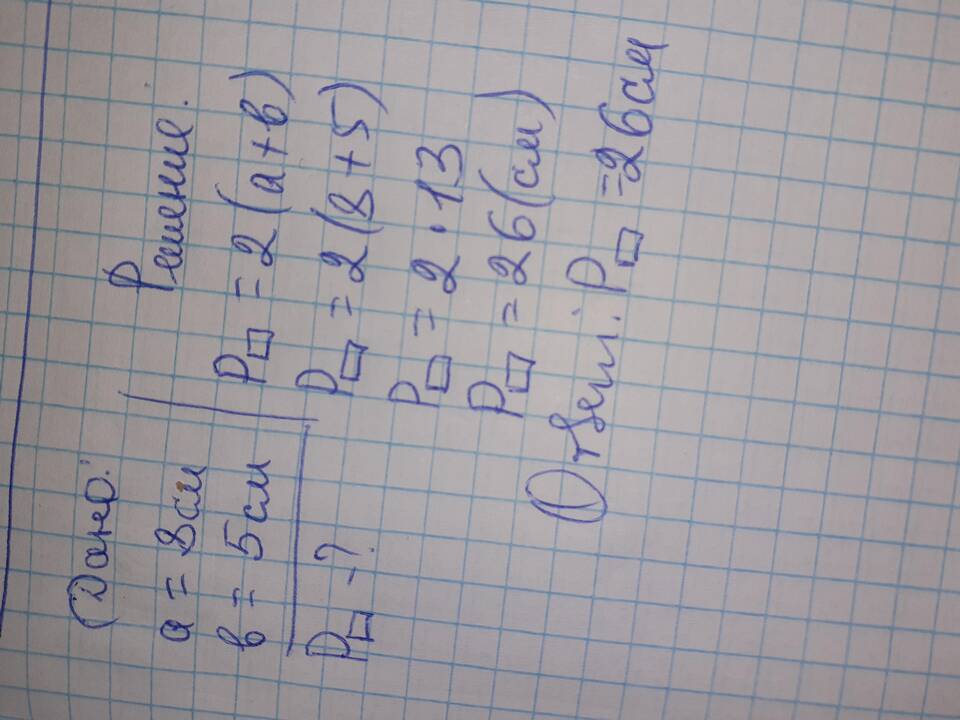 Дано:
a = 8см
в = 5см
P□ -?
Решение.
P□ = 2(a+в)
P□ = 2(8+5)
P□ = 2·13
P□ = 26(см)
Ответ: P□ = 26см